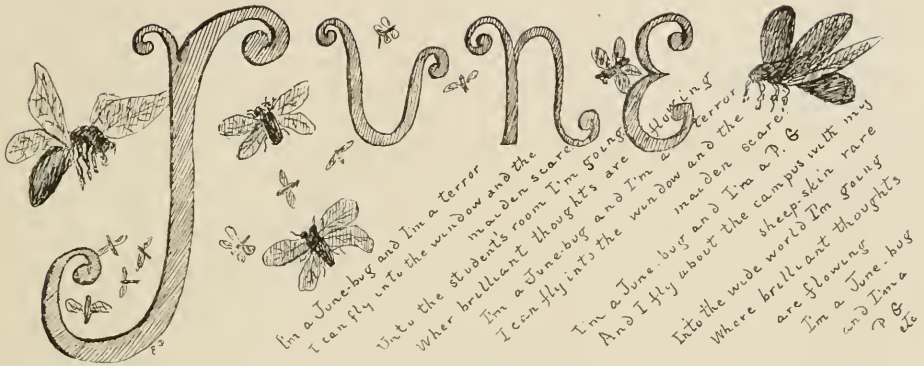 JUNE
I'm a June-bug and I'm a terror
I can fly into the window and the
maiden scare
Unto the student's room I'm going
Wher brilliant thoughts are flowing
I'm a June-bug and I'm a terror
I can fly into the window and the
maiden scare.
I'm a June-bug and I'm a P. G
And I fly about the campus with my
sheep-skin rare
Into the wide world I'm going
Where brilliant thoughts
are flowing
I'm a June-bug
and I'm a
P G
etc